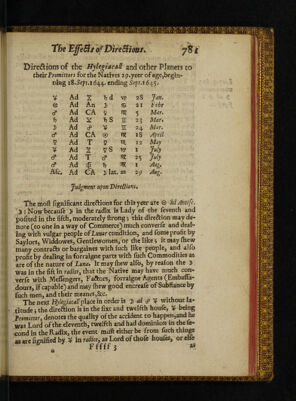 The Effects of Directions. 781
Directions of the Hylegiacall and other Planets to
their Promittors for the Natives 29. yeer of age, begin-
ning 18. Sept. 1644. ending Sept. 1645.
☿ Ad ⚻ ♄ d ♑ 28 Jan.
⊕ Ad An ☽ ♋ 21 Febr
♂ Ad CA ♀ ♏ 5 Mar.
♄ Ad ⚻ ♄ S ♊ 23 Mar.
☽ Ad ☿ ♊ 24 Mar.
♂ Ad CA ♏ 18 April
♀ Ad T ♀ ♏ 12 May
♀ Ad ⚻ ♀ S ♑ 1 July
♂ Ad T ♂ ♏ 25 July
♂ Ad ♄ ♏ 1 Aug.
Asc. Ad CA ☽ lat. ♒ 29 Aug.
Judgment upon Directions.
The most significant directions for this yeer are ⊕ ad Antisc.
☽: Now because ☽ in the radix is Lady of the seventh and
posited in the fifth, moderately strong; this direction may de-
note (to one in a way of Commerce) much converse and deal-
ing with vulgar people of Lunar condition, and some profit by
Saylors, Widdowes, Gentlewomen, or the like; it may shew
many contracts or bargaines with such like people, and also
profit by dealing in forraigne parts with such Commodities as
are of the nature of Luna. It may shew also, by reason the ☽
was in the fift in radice, that the Native may have much con-
verse with Messengers, Factors, forraigne Agents (Embassa-
dours, if capable) and may shew good encrease of Substance by
such men, and their meanes, &c.
The next Hylegiacall place in order is ☽ ad ☿ without la-
titude; the direction is in the sixt and twelfth house, ☿ being
Promittor, denotes the quality of the accident to happen, and he
was Lord of the eleventh, twelfth and had dominion in the se-
cond in the Radix, the event must either be from such things
as are signified by ☿ in radice, as Lord of those houses, or else
Fffff 3 as